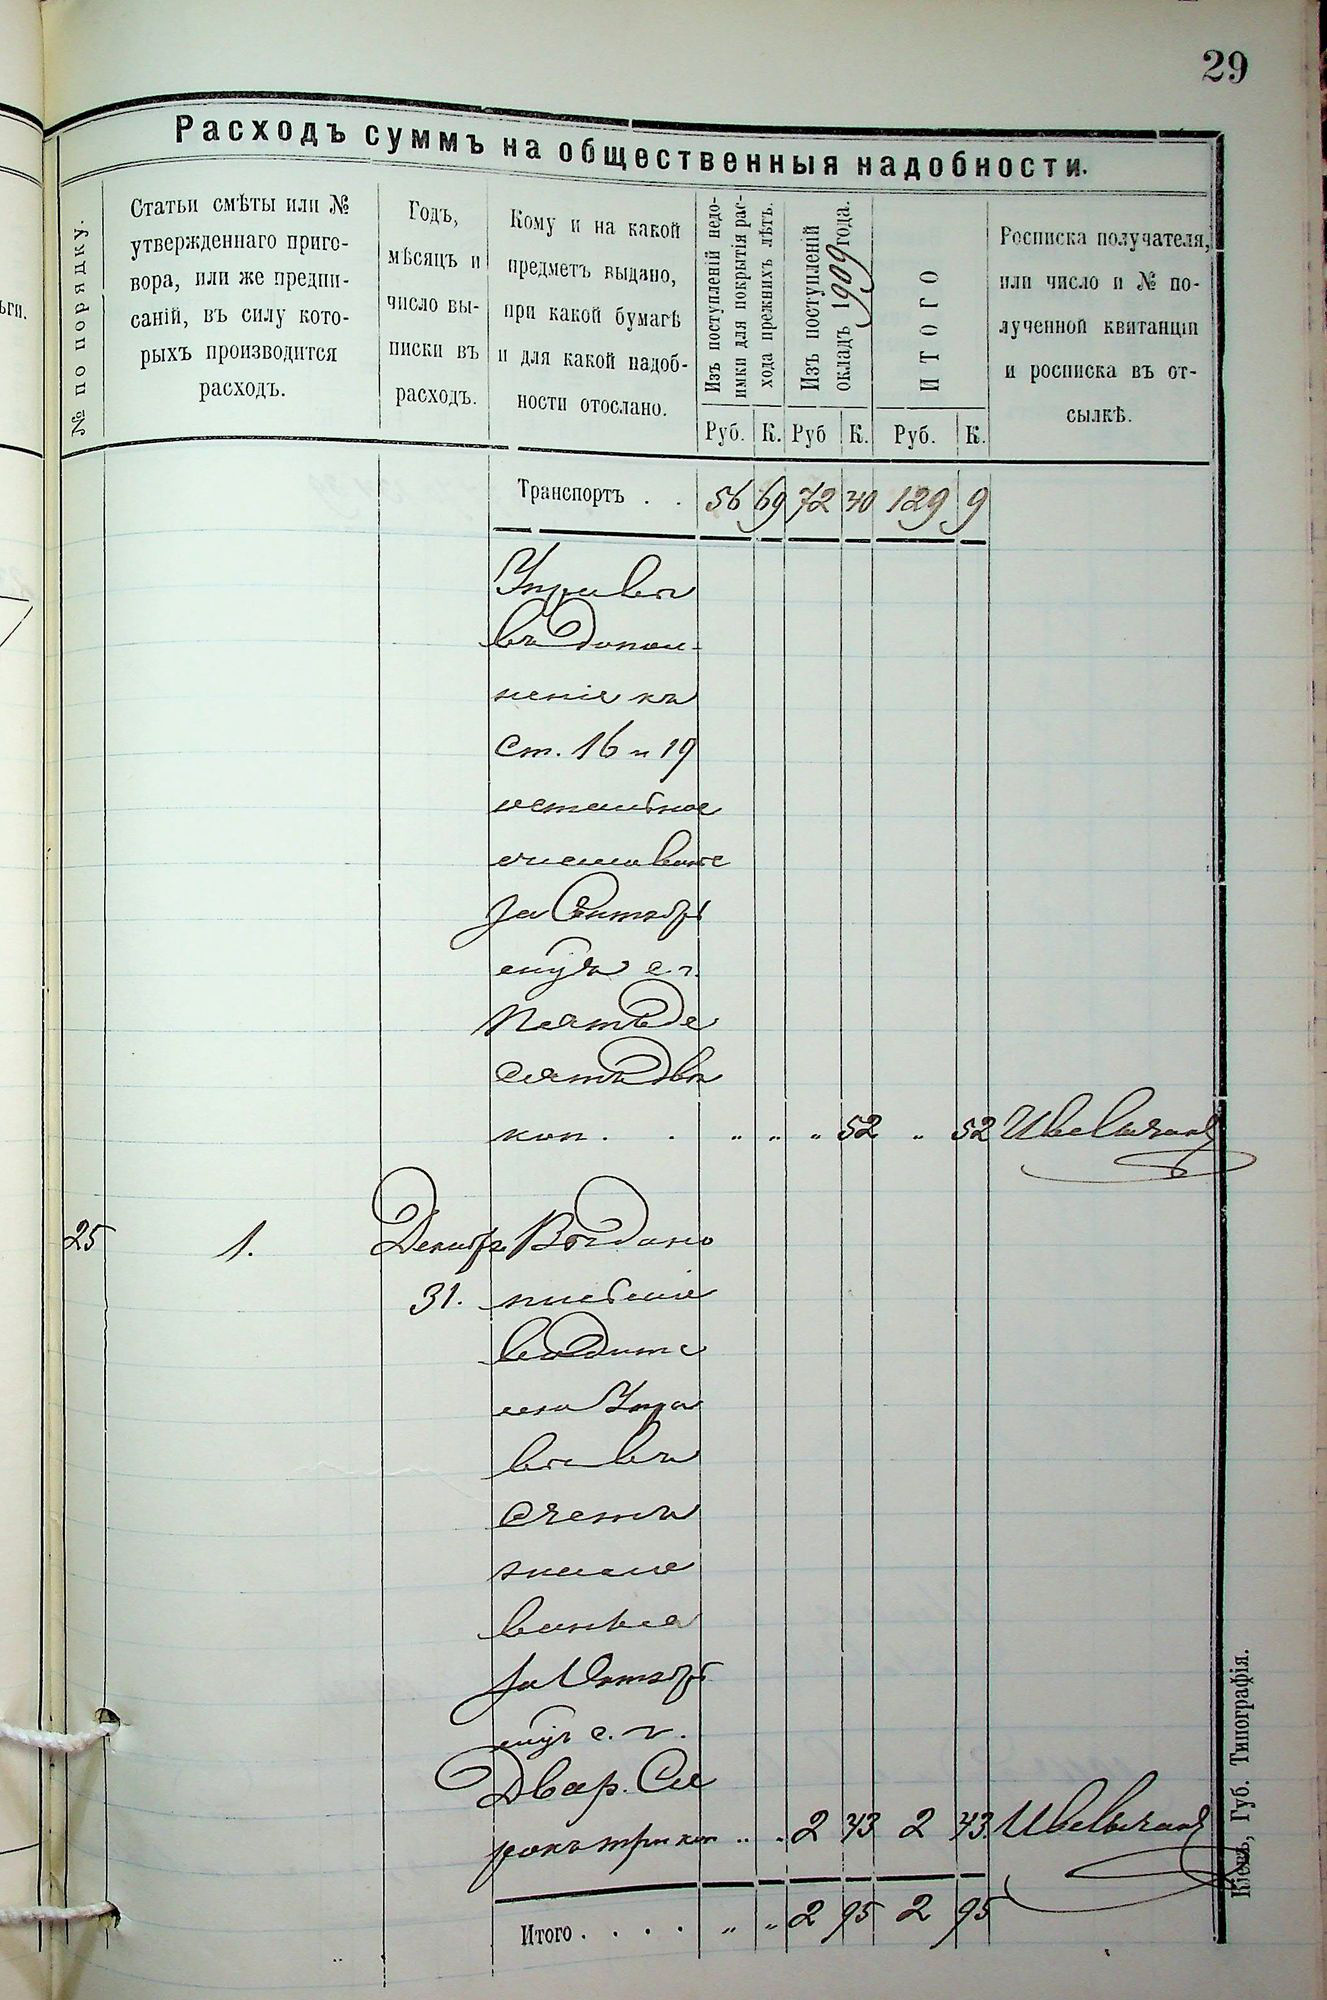 29
Расходъ суммъ на общественныя надобности.
№ по порядку.
Статьи смѣты или №
утвержденнаго приго-
вора, или же предпи-
саній, въ силу кото-
рыхъ производится
расходъ.
Годъ,
мѣсяцъ и
число вы-
писки въ
расходъ.
Кому и на какой
предметъ выдано,
при какой бумагѣ
и для какой надоб-
ности отослано.
Изъ поступленій недо-
имки для покрытія рас-
хода прежнихъ лѣтъ.
Изъ поступленій
окладъ 1909 года.
ИТОГО
Росписка получателя,
или число и № по-
лученной квитанціи
и росписка въ от-
сылкѣ.
Руб. К. Руб К. Руб. К.
Транспортъ . . 56 69 72 40 129 9
Управы
въ допол-
неніе къ
ст. 16 и 19
остальное
жалованье
за Сентябр
с. г.
Пятьде
сятъ двѣ
коп. . „ „ „ 52 „ 52
25 1. Декабр Выдано
31.
водите
лю Упра
вы въ
счетъ
жало
ванья
за Октябр
с. г.
Два р. Со
рокъ три коп „ „ 2 43 2 43
Итого . . . . „ „ 2 95 2 95
Кіевъ, Губ. Типографія.